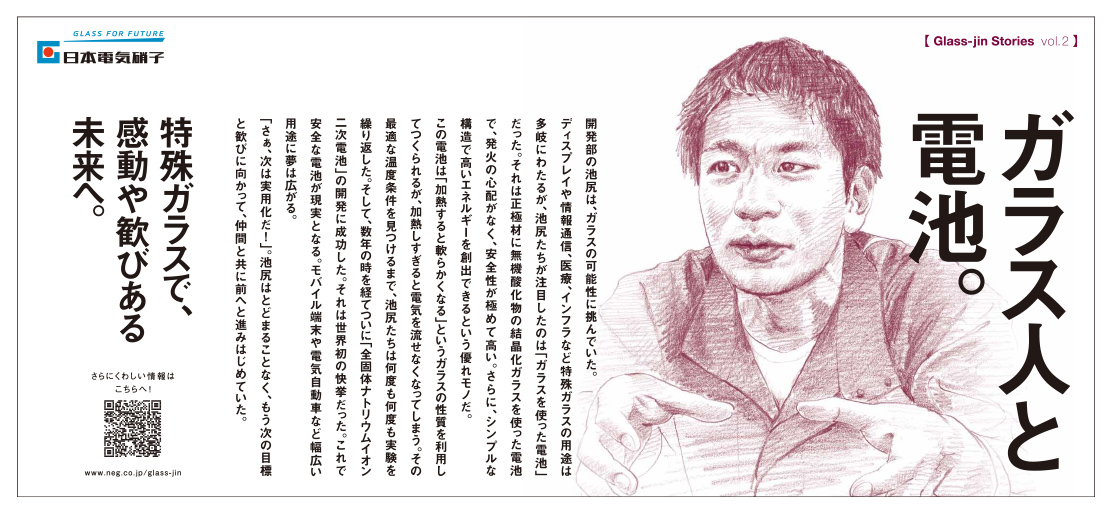 GLASS FOR FUTURE
日本電気硝子
【 Glass-jin Stories vol.2 】
ガラス人と
電池。
開発部の池尻は、ガラスの可能性に挑んでいた。
ディスプレイや情報通信、医療、インフラなど特殊ガラスの用途は
多岐にわたるが、池尻たちが注目したのは「ガラスを使った電池」
だった。それは正極材に無機酸化物の結晶化ガラスを使った電池
で、発火の心配がなく、安全性が極めて高い。さらに、シンプルな
構造で高いエネルギーを創出できるという優れモノだ。
この電池は「加熱すると軟らかくなる」というガラスの性質を利用し
てつくられるが、加熱しすぎると電気を流せなくなってしまう。その
最適な温度条件を見つけるまで、池尻たちは何度も何度も実験を
繰り返した。そして、数年の時を経てついに「全固体ナトリウムイオン
二次電池」の開発に成功した。それは世界初の快挙だった。これで
安全な電池が現実となる。モバイル端末や電気自動車など幅広い
用途に夢は広がる。
「さぁ、次は実用化だ！」。池尻はとどまることなく、もう次の目標
と歓びに向かって、仲間と共に前へと進みはじめていた。
特殊ガラスで、
感動や歓びある
未来へ。
さらにくわしい情報は
こちらへ！
www.neg.co.jp/glass-jin